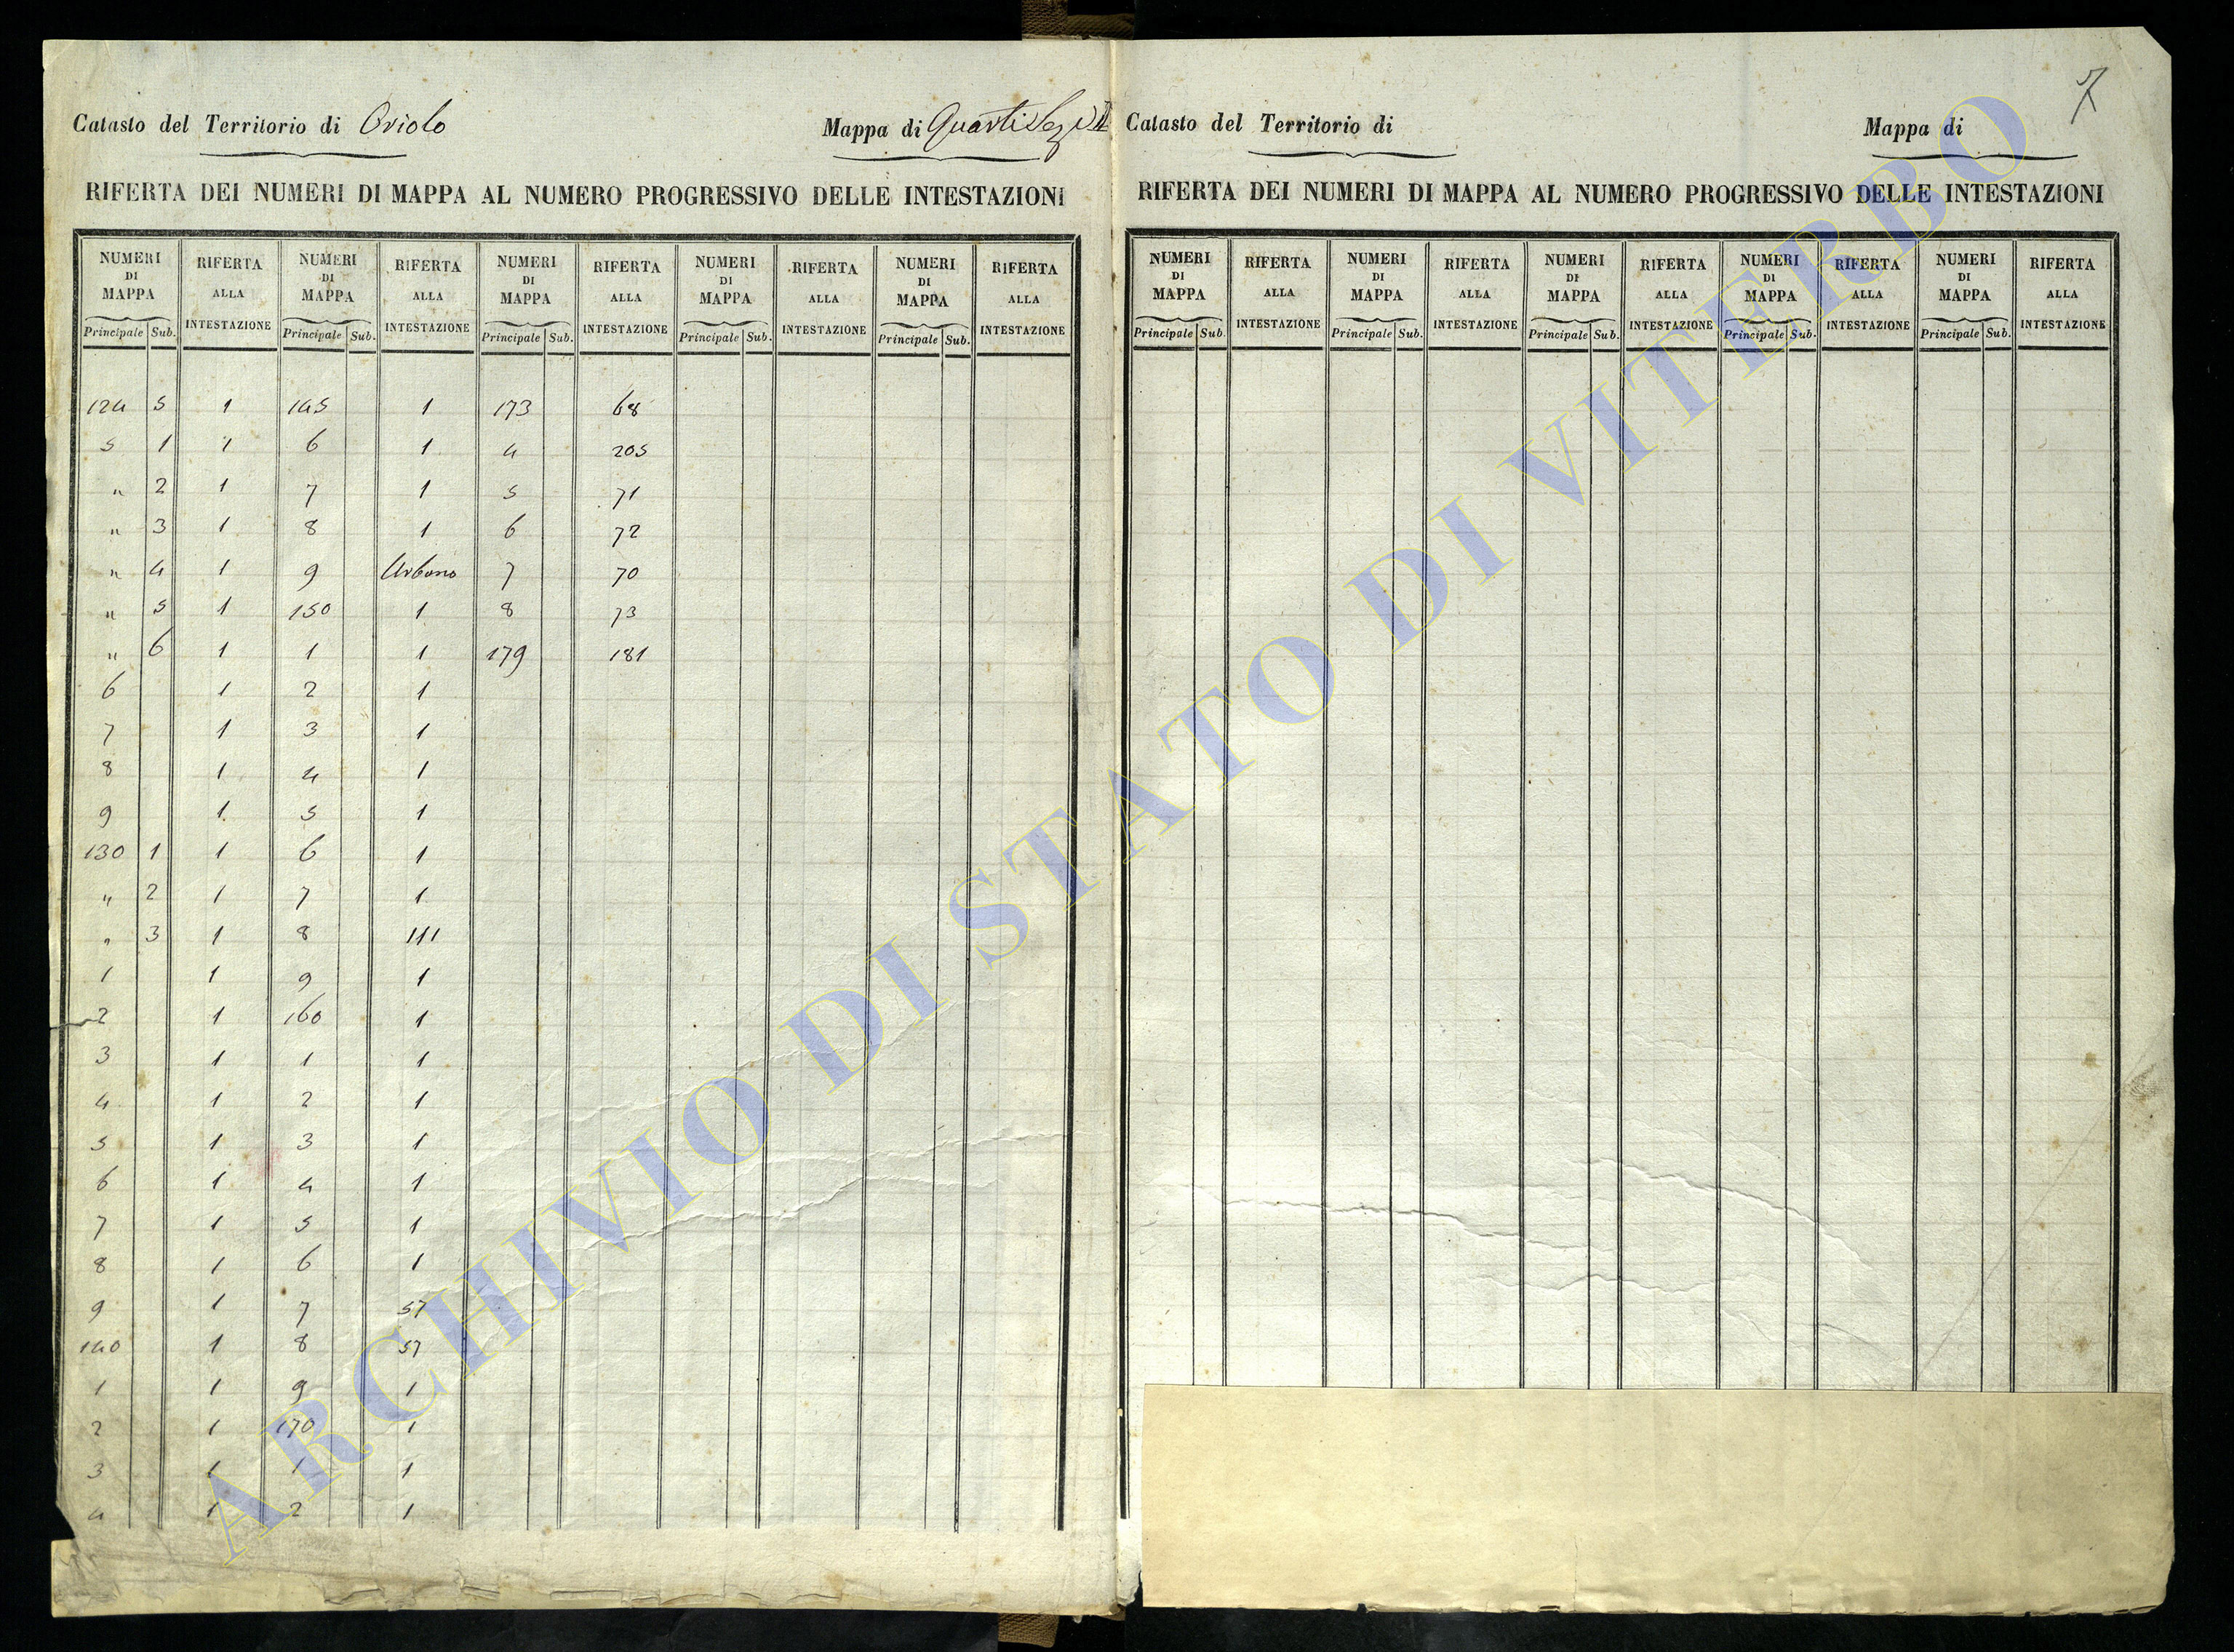 7
Catasto del Territorio di Oriolo Mappa di Quarti Sez II
RIFERTA DEI NUMERI DI MAPPA AL NUMERO PROGRESSIVO DELLE INTESTAZIONI
NUMERI DI MAPPA RIFERTA ALLA INTESTAZIONE NUMERI DI MAPPA RIFERTA ALLA INTESTAZIONE NUMERI DI MAPPA RIFERTA ALLA INTESTAZIONE NUMERI DI MAPPA RIFERTA ALLA INTESTAZIONE NUMERI DI MAPPA RIFERTA ALLA INTESTAZIONE
Principale Sub. Principale Sub. Principale Sub. Principale Sub. Principale Sub.
124 5 1 145 1 173 68
5 1 1 6 1 4 205
" 2 1 7 1 5 71
" 3 1 8 1 6 72
" 4 1 9 Urbano 7 70
" 5 1 150 1 8 73
" 6 1 1 1 179 181
6 1 2 1
7 1 3 1
8 1 4 1
9 1 5 1
130 1 1 6 1
" 2 1 7 1
" 3 1 8 111
1 1 9 1
2 1 160 1
3 1 1 1
4 1 2 1
5 1 3 1
6 1 4 1
7 1 5 1
8 1 6 1
9 1 7 57
140 1 8 57
1 1 9 1
2 1 170 1
3 1 1 1
4 1 2 1
Catasto del Territorio di Mappa di
RIFERTA DEI NUMERI DI MAPPA AL NUMERO PROGRESSIVO DELLE INTESTAZIONI
NUMERI DI MAPPA RIFERTA ALLA INTESTAZIONE NUMERI DI MAPPA RIFERTA ALLA INTESTAZIONE NUMERI DI MAPPA RIFERTA ALLA INTESTAZIONE NUMERI DI MAPPA RIFERTA ALLA INTESTAZIONE NUMERI DI MAPPA RIFERTA ALLA INTESTAZIONE
Principale Sub. Principale Sub. Principale Sub. Principale Sub. Principale Sub.
ARCHIVIO DI STATO DI VITERBO